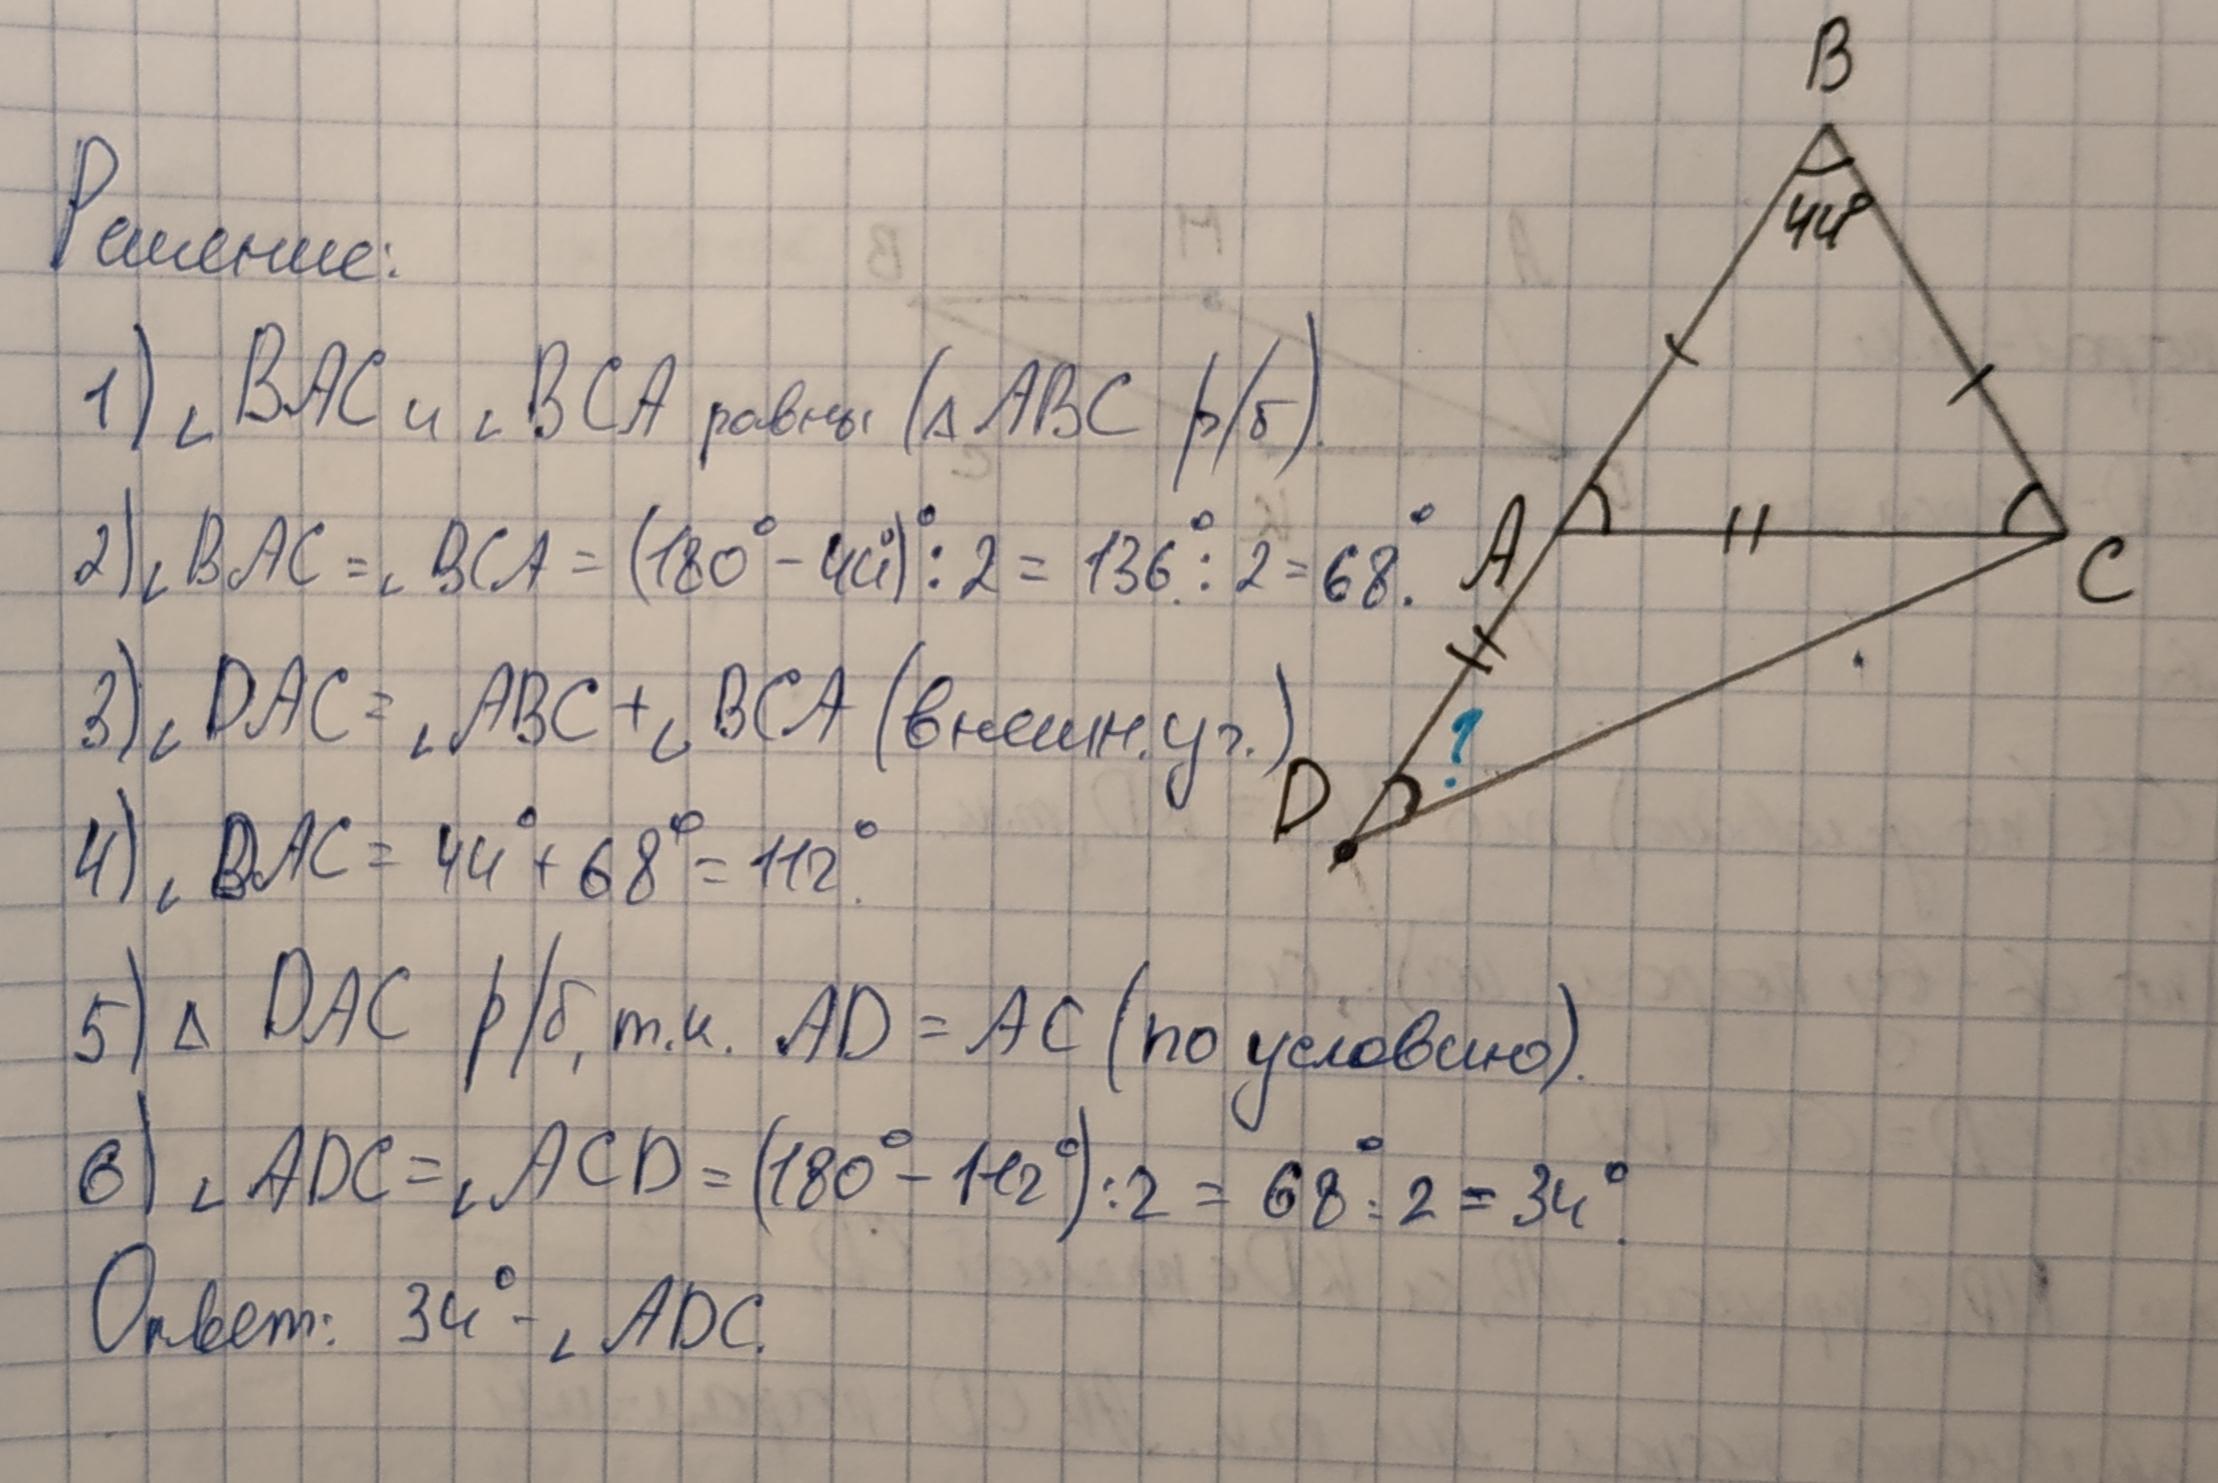 Решение:
1) ∟BAC и ∟BCA равны (△ABC р/б).
2) ∟BAC = ∟BCA = (180° - 44°)° : 2 = 136° : 2 = 68°.
3) ∟DAC = ∟ABC + ∟BCA (внешн. уг.)
4) ∟DAC = 44° + 68° = 112°.
5) △ DAC р/б, т.к. AD = AC (по условию).
6) ∟ADC = ∟ACD = (180° - 112°) : 2 = 68° : 2 = 34°.
Ответ: 34° - ∟ADC.
B
44°
A
C
D
?